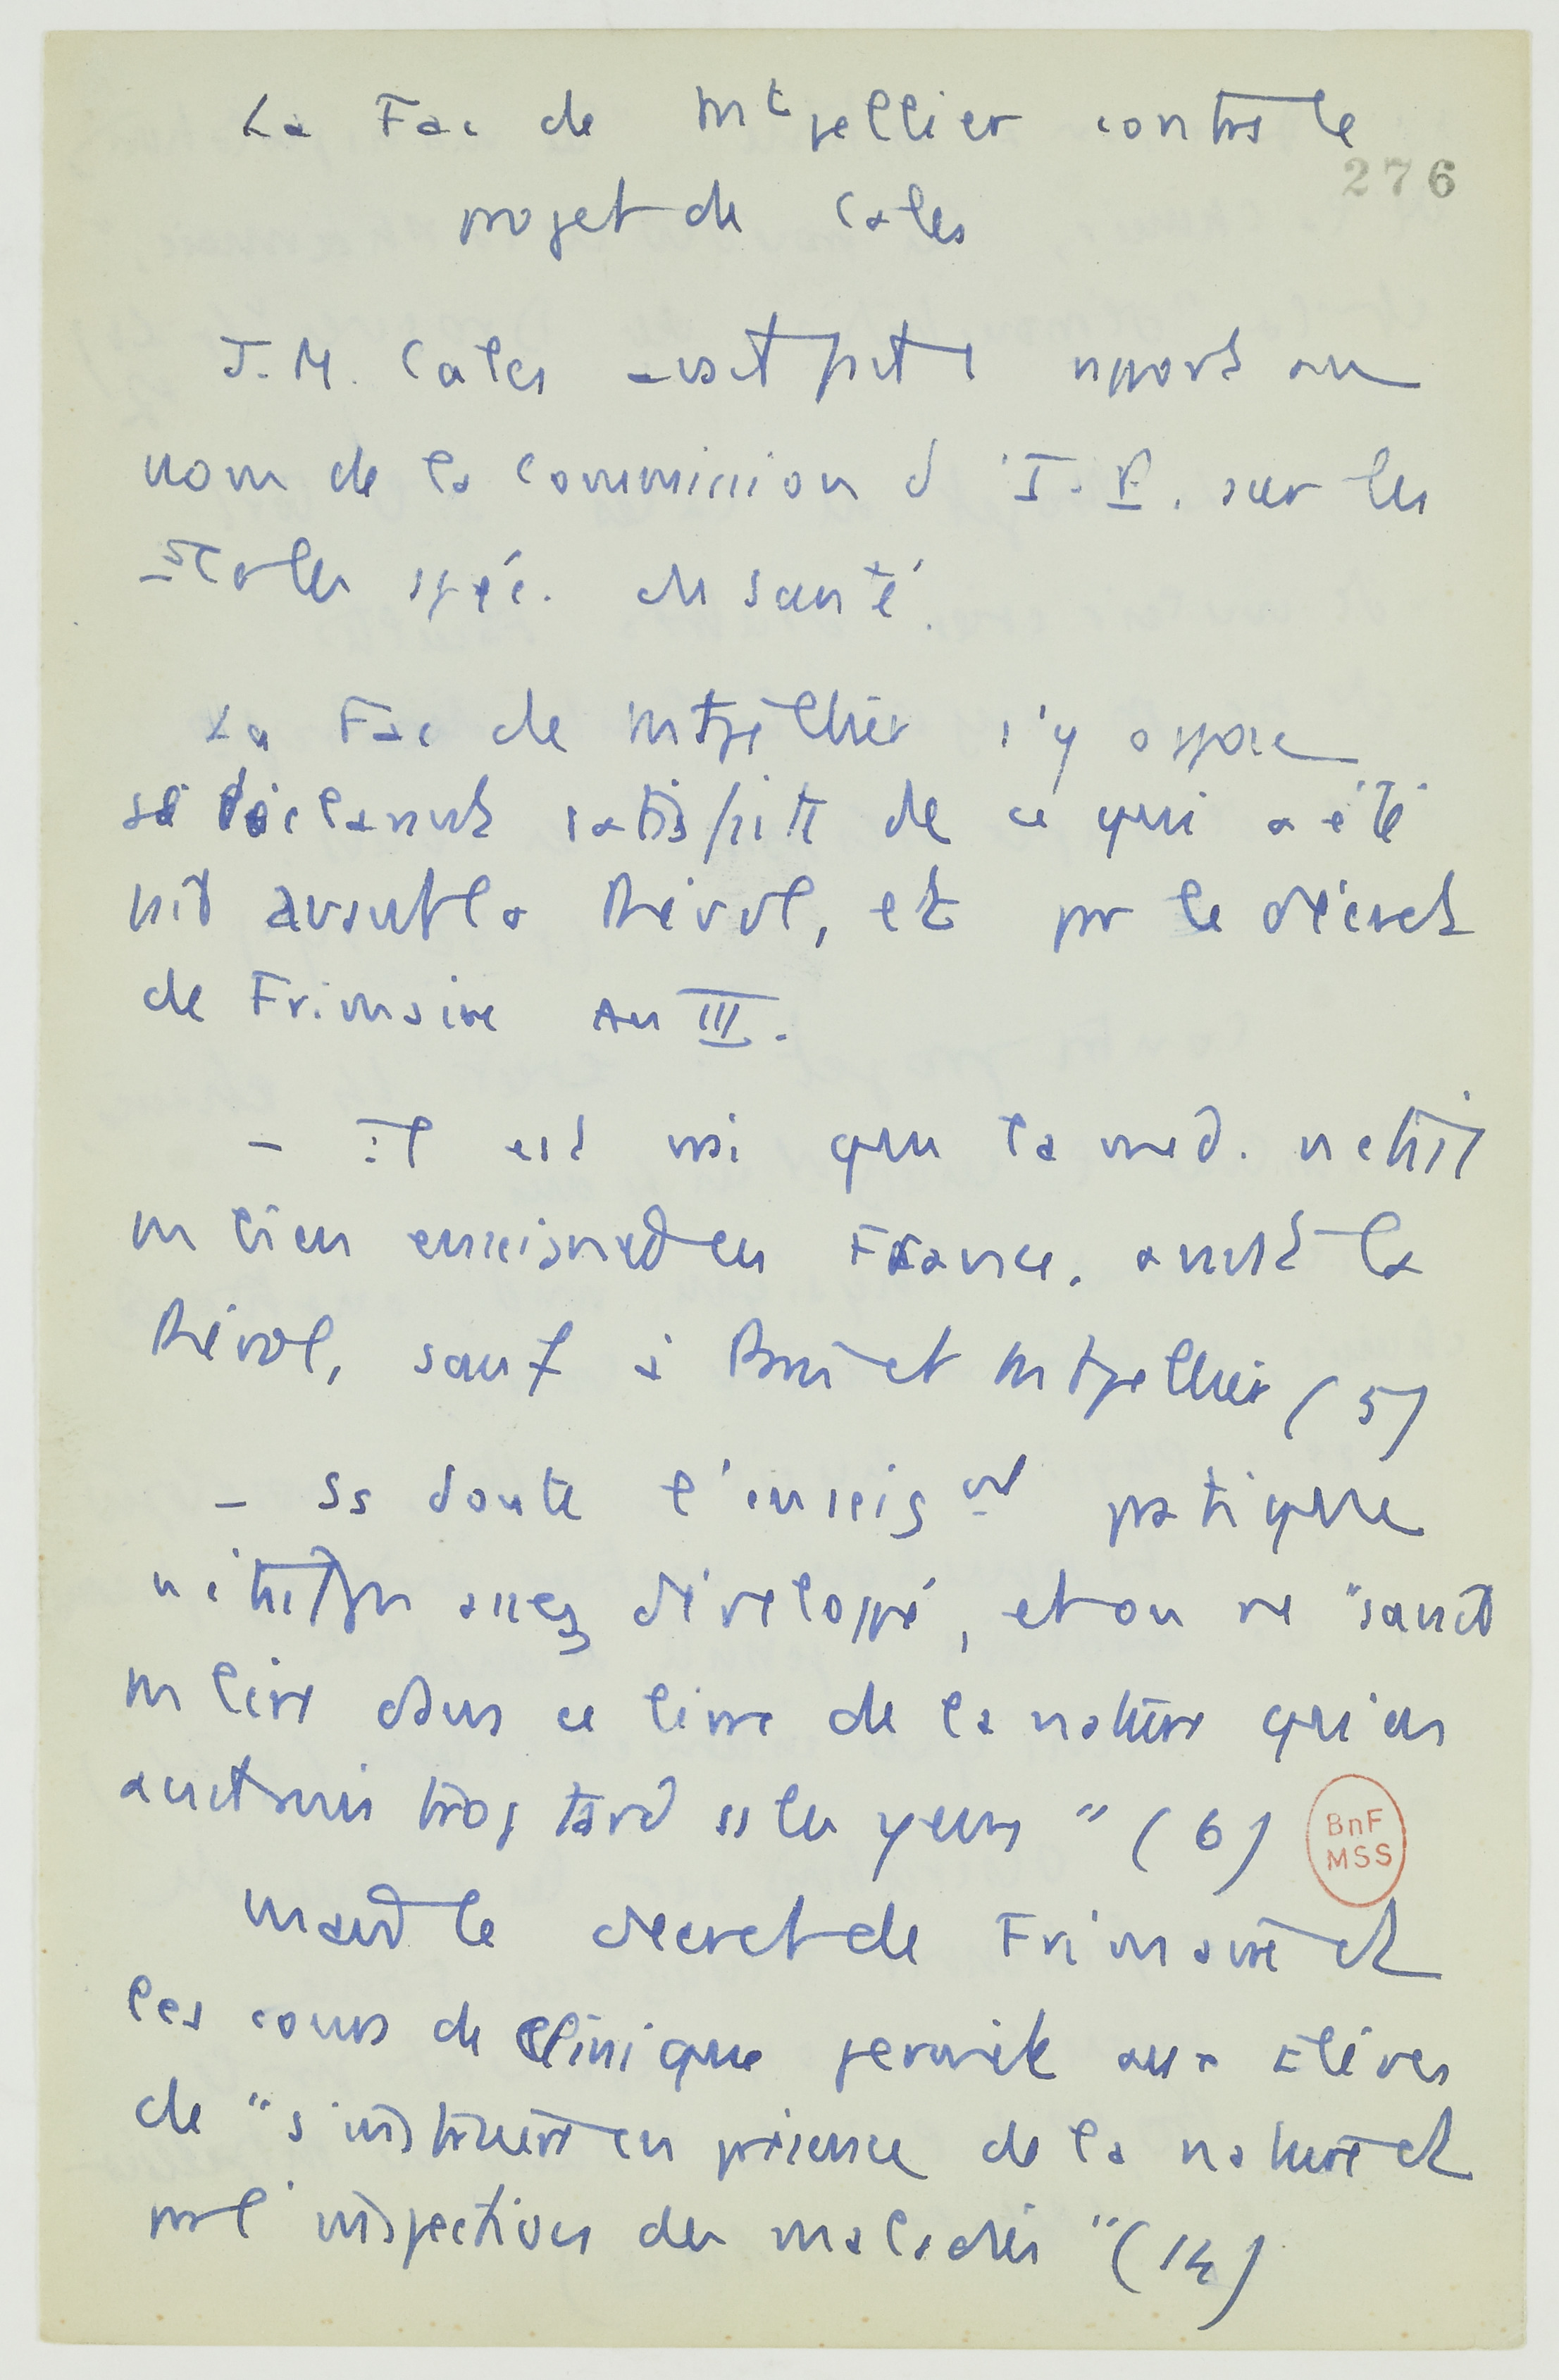 La Fac de Mtpellier contre le
276
projet de Cales
J. M. Cales avait fait 1 rapport au
nom de la Commission d'I. P. sur les
Ecoles spéc. de santé.
La Fac de Mtpellier s'y oppose
se déclarant satisfaite de ce qui a été
fait avant la Révol, et par le décret
de Frimaire An III.
- Il est vrai que la med. n'était
pas bien enseignée en France. avant la
Révol, sauf à Paris et Mtpellier (5)
- ss doute l'enseigmt pratique
n'était pas assez développé, et on ne "saurait
pas lire dans ce livre de la nature qu'on
mettrait trop tard ss les yeux" (6)
mais le decret de Frimaire et
les cours de Clinique permet aux Elèves
de "s'instruire en présence de la nature et
par l'inspection des maladies" (14)
BnF
MSS